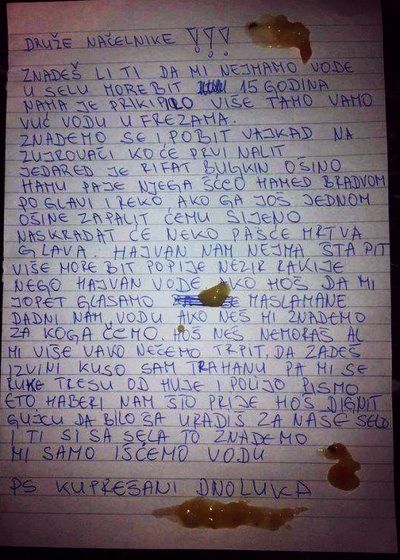 DRUŽE NAČELNIKE !!!
ZNADEŠ LI TI DA MI NEJMAMO VODE
U SELU MOREBIT 15 GODINA
NAMA JE PRIKIPILO VIŠE TAMO VAMO
VUĆ VODU U FREZAMA.
ZNADEMO SE I POBIT VAJKAD NA
ZUJROVAČI KO ĆE PRVI NALIT
JEDARED JE RIFAT BULJKIN OŠINO
HAMU PA JE NJEGA ŠĆEO HAMED BRADVOM
PO GLAVI I REKO AKO GA JOŠ JEDNOM
OŠINE ZAPALIT ĆEMU SIJENO
NASKRADAT ĆE NEKO PAŠČE MRTVA
GLAVA. HAJVAN NAM NEJMA ŠTA PIT
VIŠE MORE BIT POPIJE NEZIR RAKIJE
NEGO HAJVAN VODE. AKO HOŠ DA MI
JOPET GLASAMO MASLAMANE
DADNI NAM VODU AKO NEŠ MI ZNADEMO
ZA KOGA ĆEMO. HOŠ NEŠ NEMORAŠ AL
MI VIŠE VAVO NEĆEMO TRPIT, DA ZADEŠ
IZVINI KUSO SAM TRAHANU PA MI SE
RUKE TRESU OD HUJE I POLIJO PISMO
ETO HABERI NAM ŠTO PRIJE HOŠ DIGNIT
GUJCU DA BILO ŠA URADIŠ ZA NAŠE SELO
I TI SI SA SELA TO ZNADEMO
MI SAMO IŠĆEMO VODU
PS KUPREŠANI DNOLUKA